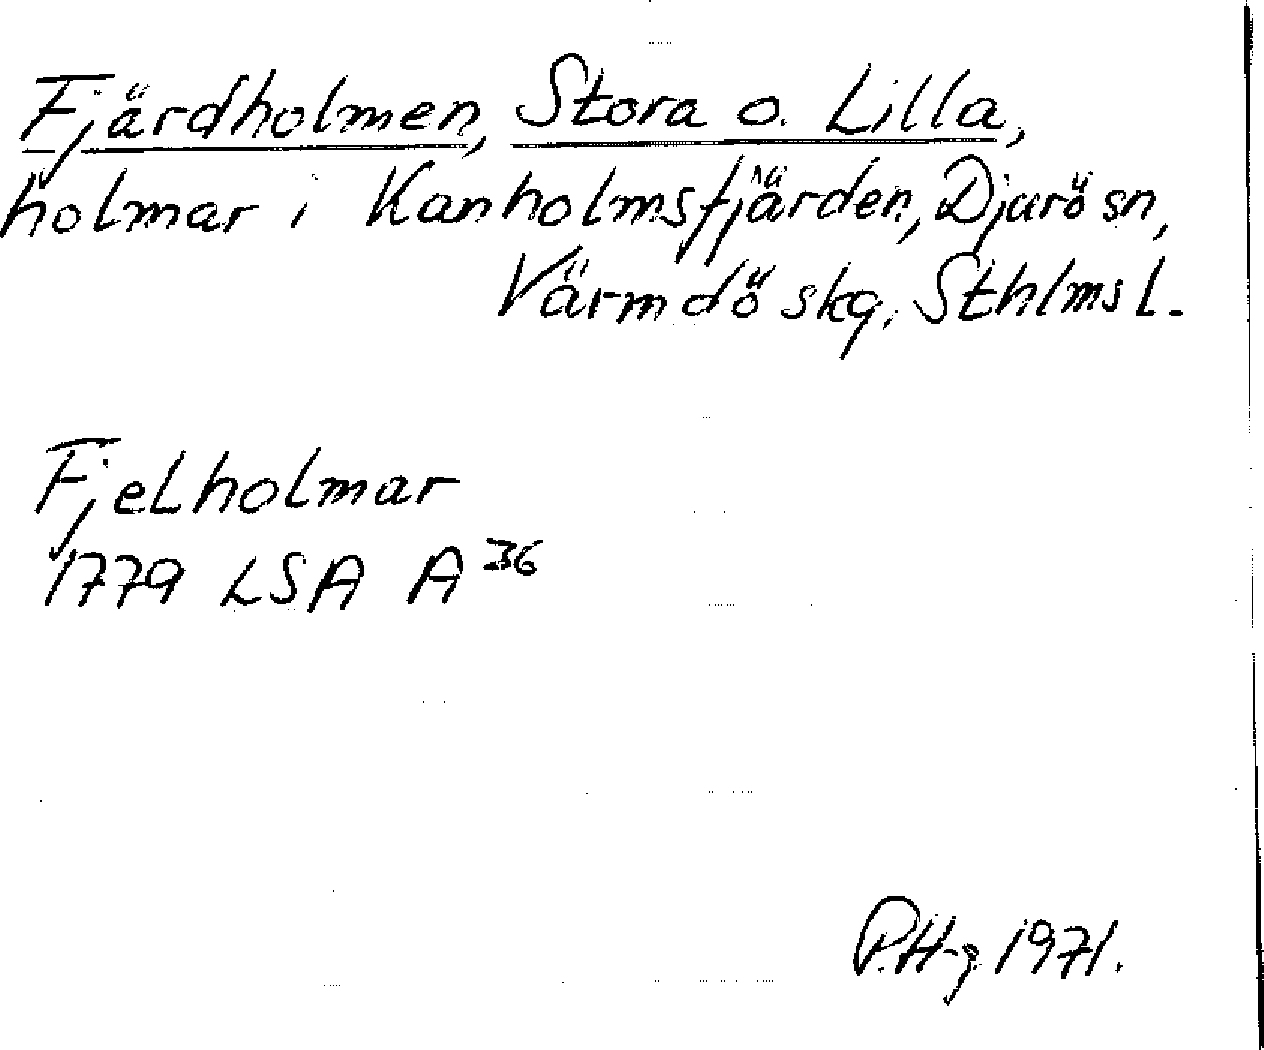 Fjärdholmen, Stora o. Lilla,
holmar i Kanholmsfjärden, Djurö sn,
Värmdö skg, Sthlms l.
Fjelholmar
1779 LSA A 36
P.H-g 1971.